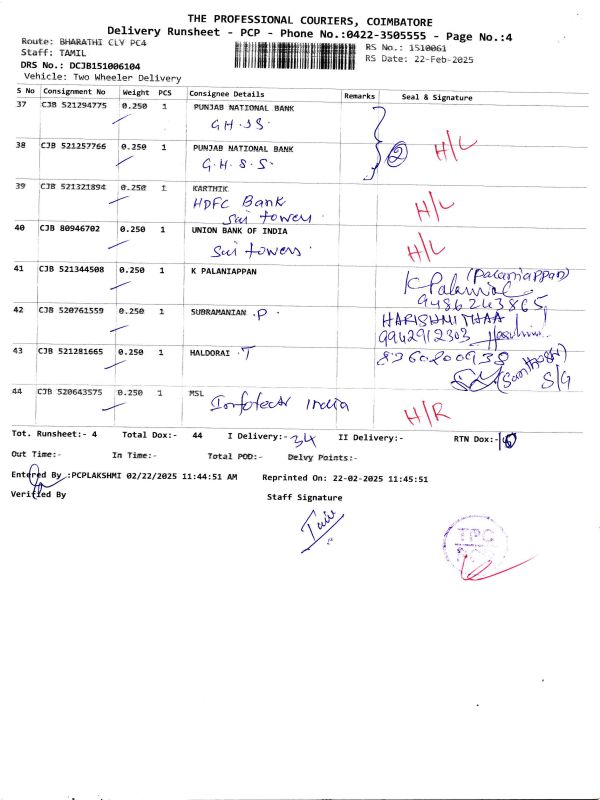 THE PROFESSIONAL COURIERS, COIMBATORE
Delivery Runsheet - PCP - Phone No.:0422-3505555 - Page No.:4
Route: BHARATHI CLY PC4
RS No.: 1510061
Staff: TAMIL
RS Date: 22-Feb-2025
DRS No.: DCJB151006104
Vehicle: Two Wheeler Delivery
S No Consignment No Weight PCS Consignee Details Remarks Seal & Signature
37 CJB 521294775 0.250 1 PUNJAB NATIONAL BANK
G.H.S.S.
38 CJB 521257766 0.250 1 PUNJAB NATIONAL BANK
G.H.S.S.
2 H/L
39 CJB 521321894 0.250 1 KARTHIK
HDFC Bank
Sai towers.
H/L
40 CJB 80946702 0.250 1 UNION BANK OF INDIA
Sai towers.
H/L
41 CJB 521344508 0.250 1 K PALANIAPPAN
(Palaniappan)
9486243865
42 CJB 520761559 0.250 1 SUBRAMANIAN .P.
HARISHMITHAA
9942912303
43 CJB 521281665 0.250 1 HALDORAI .T
8360200938
(Santhosh)
S/G
44 CJB 520643575 0.250 1 MSL
Infotech India
H/R
Tot. Runsheet:- 4 Total Dox:- 44 I Delivery:- 34 II Delivery:- RTN Dox:-
Out Time:- In Time:- Total POD:- Delvy Points:-
Entered By :PCPLAKSHMI 02/22/2025 11:44:51 AM Reprinted On: 22-02-2025 11:45:51
Verified By Staff Signature
TPC